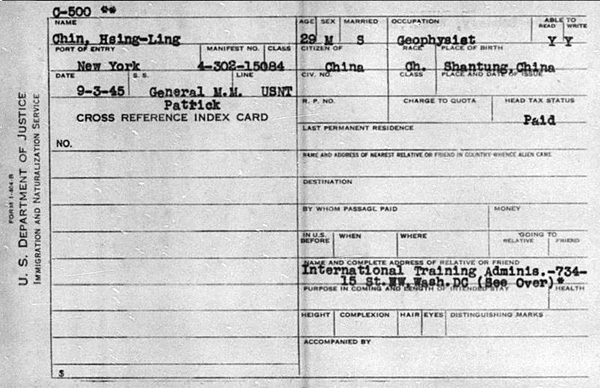 C-500 **
NAME
Chin, Hsing-Ling
AGE SEX MARRIED OCCUPATION ABLE TO READ WRITE
29 M S Geophysist Y Y
PORT OF ENTRY MANIFEST NO. CLASS
New York 4-302-15084
CITIZEN OF RACE PLACE OF BIRTH
China Ch. Shantung, China
DATE S. S. LINE
9-3-45 General M.M. Patrick USNT
CIV. NO. CLASS PLACE AND DATE OF ISSUE
CROSS REFERENCE INDEX CARD
R. P. NO. CHARGE TO QUOTA HEAD TAX STATUS
Paid
LAST PERMANENT RESIDENCE
NO.
NAME AND ADDRESS OF NEAREST RELATIVE OR FRIEND IN COUNTRY WHENCE ALIEN CAME
DESTINATION
BY WHOM PASSAGE PAID MONEY
IN U.S. BEFORE WHEN WHERE GOING TO RELATIVE FRIEND
NAME AND COMPLETE ADDRESS OF RELATIVE OR FRIEND
International Training Adminis.-734-
15 St.NW.Wash.DC (See Over)*
PURPOSE IN COMING AND LENGTH OF INTENDED STAY HEALTH
HEIGHT COMPLEXION HAIR EYES DISTINGUISHING MARKS
ACCOMPANIED BY
$
FORM I-404 B
U. S. DEPARTMENT OF JUSTICE
IMMIGRATION AND NATURALIZATION SERVICE